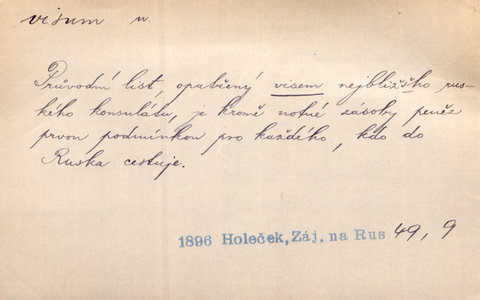 visum n.
Průvodní list, opatřený visem nejbližšho rus-
kého konsulátu, je kromě notné zásoby peněz
prvou podmínkou pro každého, kdo do
Ruska cestuje.
1896 Holeček, Záj. na Rus 49, 9